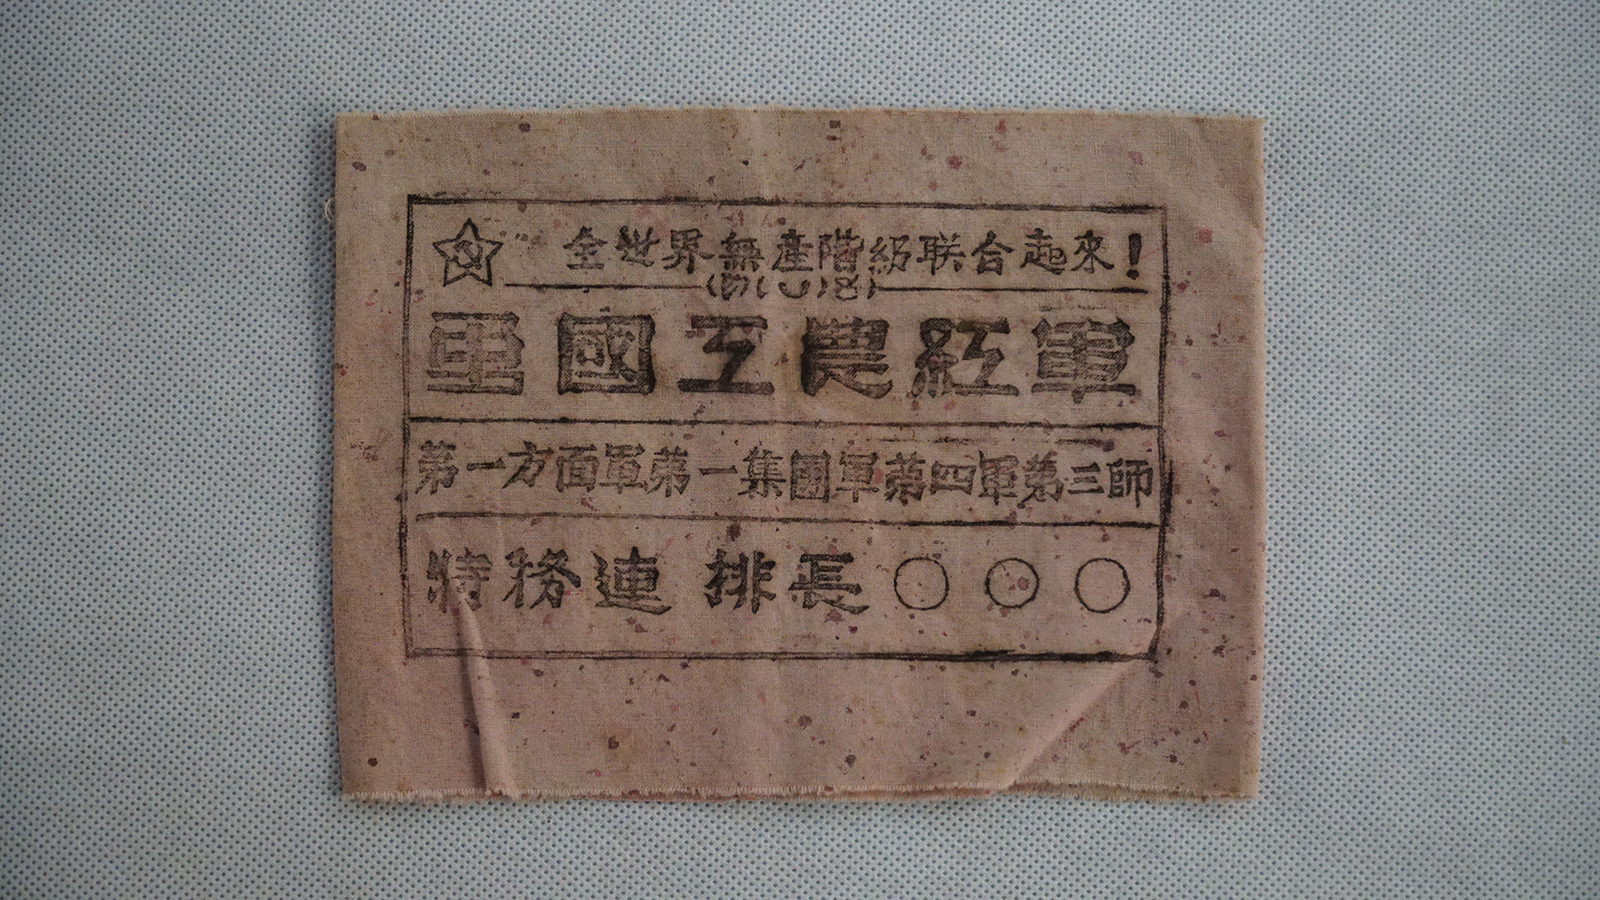 全世界無產階級联合起來！
國工農紅軍
第一方面軍第一集團軍第四軍第三師
特務連 排長 〇〇〇